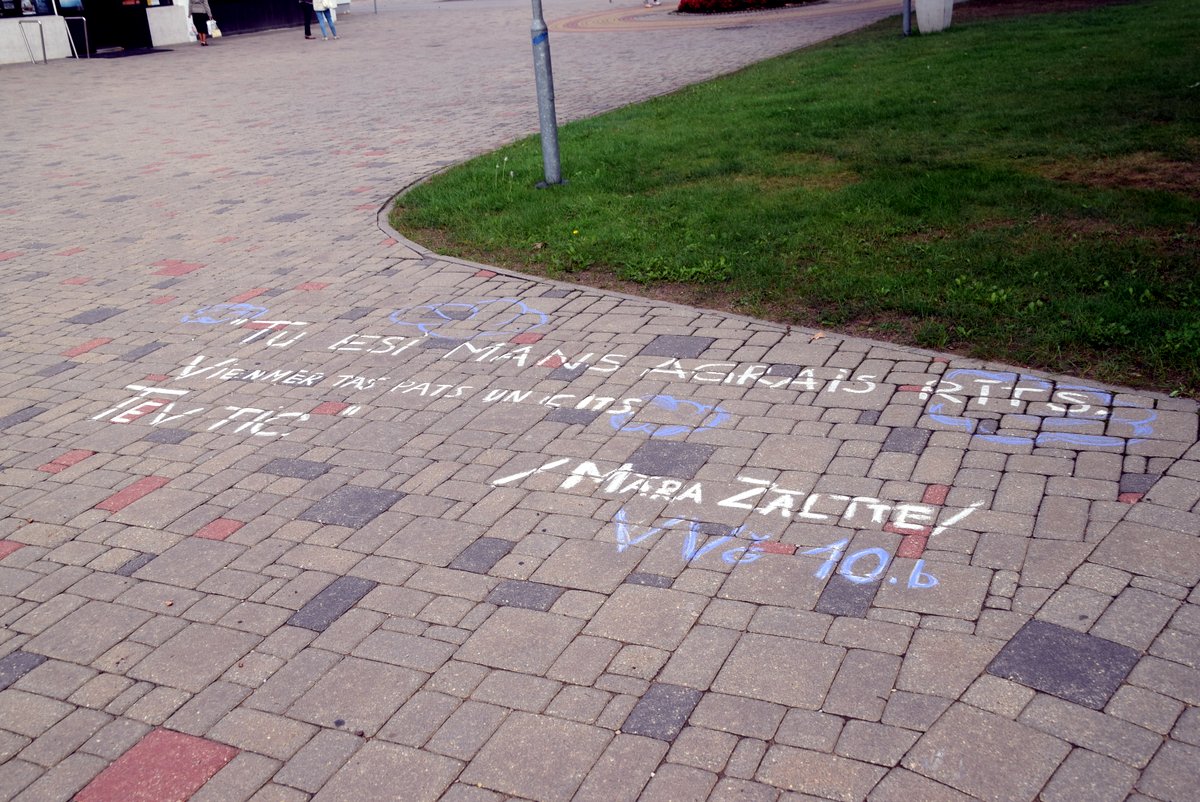 "TU ESI MANS AGRAIS RĪTS.
VIENMĒR TAS PATS UN CITS
TEV TIC."
/MĀRA ZĀLĪTE/
VVĢ 10.b